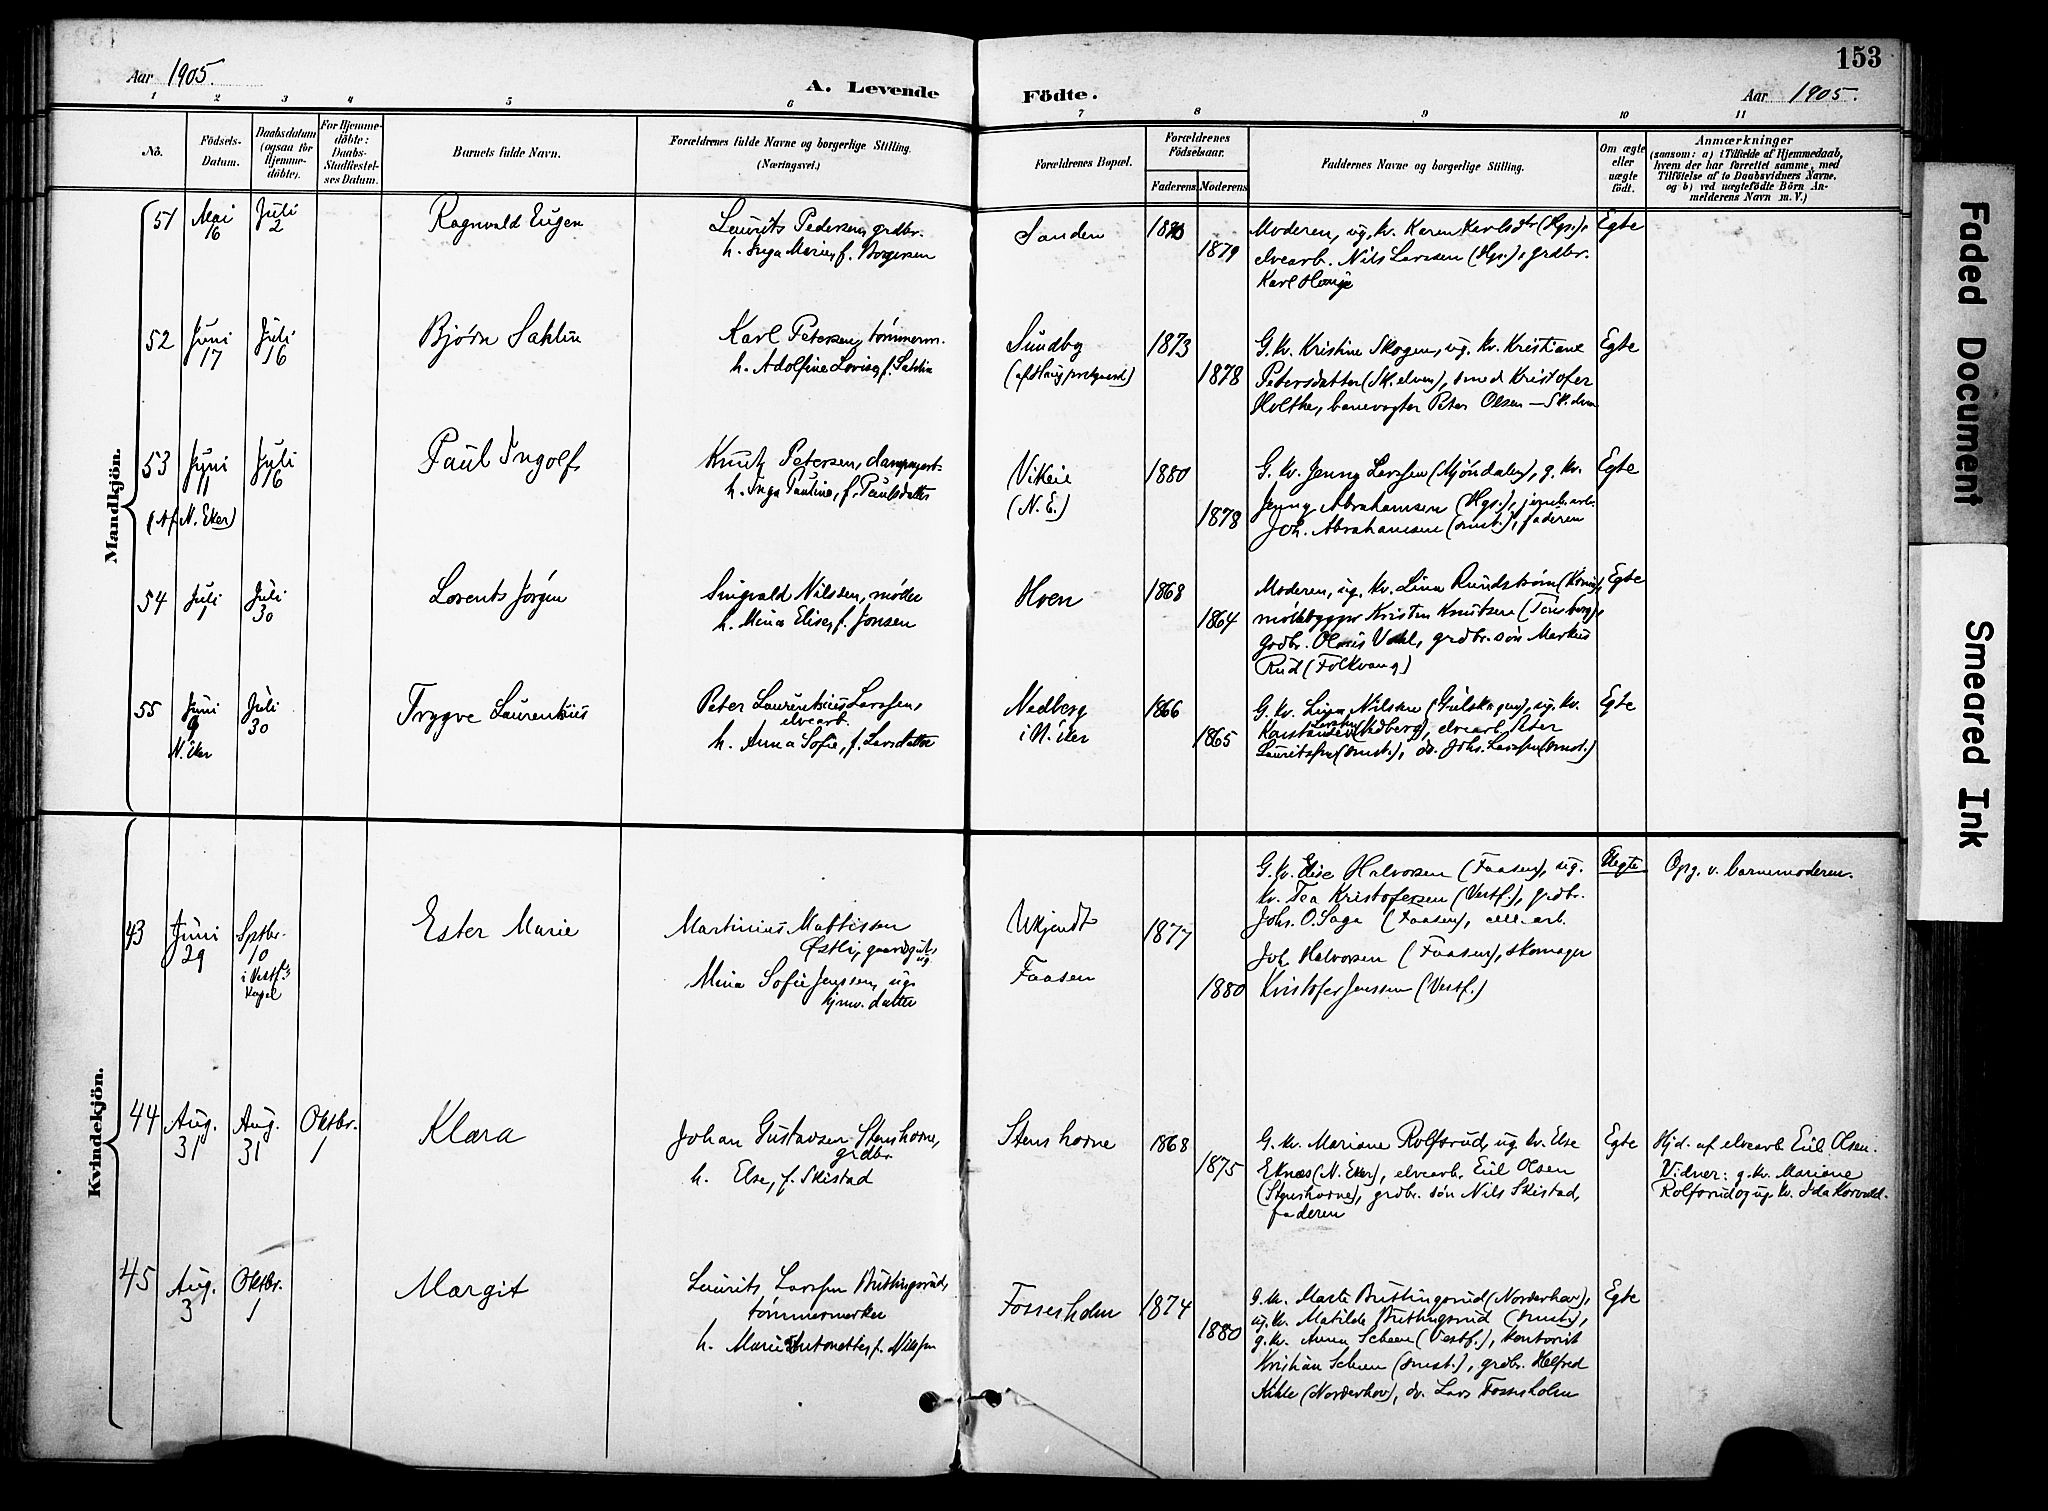 153
Aar 1905.
A. Levende Födte.
Aar 1905.
1 2 3 4 5 6 7 8 9 10 11
No.
Födsels-
Datum.
Daabsdatum
(ogsaa for
Hjemme-
döbte).
For Hjemme-
döbte:
Daabs-
Stadfæstel-
ses Datum.
Barnets fulde Navn.
Forældrenes fulde Navne og borgerlige Stilling.
(Næringsvei.)
Forældrenes Bopæl.
Forældrenes
Födselsaar.
Faderens. Moderens.
Faddernes Navne og borgerlige Stilling.
Om ægte
eller
uægte
födt.
Anmærkninger
(saasom: a) i Tilfælde af Hjemmedaab,
hvem der har forrettet samme, med
Tilföielse af to Daabsvidners Navne,
og b) ved uægtefödte Börn An-
melderens Navn m. V.)
Mandkjön.
51
Mai
16
Juli
2
Ragnvald Eugen
Laurits Pedersen, grdbr.
h. Inga Marie, f. Borgersen
Sanden
1879
Moderen, ug. kv. Karen Karlsdtr (Hgs.),
elvearb. Nils Larssen (Hgs.), grdbr.
Karl Hauge
Egte
52
Juni
17
Juli
16
Bjørn Sahlin
Karl Petersen, tømmerm.
h. Adolfine Lovise, f. Sahlin
Sundby
1873
1878
G. kv. Kristine Skogen, ug. kv. Kristiane
Petersdatter (Sk.elven), smed Kristofer
Holthe, banevogter Peter Olsen
Egte
53
Juni
11
(Af N. Eker)
Juli
16
Paul Ingolf
Knut Petersen,
h. Inga Pauline, f. Paulsdatter
Vikeie
(N. E.)
1880
1878
G. kv. Jenny Larssen (Mjöndalen), g. kv.
Jenny Abrahamsen (Hgs.), jernb.arb.
Joh. Abrahamsen (smst.), faderen
Egte
54
Juli
1
Juli
30
Lorents Jørgen
Sigvald Nilssen, møller
h. Mina Elise, f. Jonsen
Hoen
1868
1864
Moderen, ug. kv. Lina Rundstrøm
møllebygger Kristen Knutsen
grdbr. Vahl, grdbr. søn Markus
Rud (Folkvang)
Egte
55
Juni
9
N. Eker
Juli
30
Trygve Laurentius
Peter Laurentius Larssen,
elvearb.
h. Anna Sofie, f. Larsdatter
Nedberg
i N. Eker
1866
1865
G. kv. Lina Nilssen (Gulskogen), ug. kv.
(Nedberg), elvearb. Peter
Lauritssen (smst.), do. Johs. Larssen (smst.)
Egte
Kvindekjön.
43
Juni
29
Sptbr.
10
i Vestf.
kapel
Ester Marie
Martinius Mattissen
Østli,
Mina Sofie Jenssen, ug.
datter
Ukjendt
Faasen
1877
1880
G. kv. Elise Halvorsen (Faasen), ug.
kv. Tea Kristofersen (Vestf.), grdbr.
Johs. O. Saga (Faasen), cell. arb.
Joh. Halvorsen (Faasen), skomager
Kristofer Jenssen (Vestf.)
Uegte
Opg. v. barnemoderen.
44
Aug.
31
Aug.
31
Oktbr.
1
Klara
Johan Gustavsen Stenshorne,
grdbr.
h. Else, f. Skistad
Stenshorne
1868
1875
G. kv. Mariane Rolfsrud, ug. kv. Else
Eknæs (N. Eker), elvearb. Eil Olsen
(Stenshorne), grdbr. søn Nils Skistad,
faderen
Egte
Hjd. af elvearb. Eil Olsen.
Vidner: g. kv. Mariane
Rolfsrud og ug. kv. Ida Korvald.
45
Aug.
3
Oktbr.
1
Margit
Laurits Larssen Buttingsrud,
tømmermerker
h. Marie Antonette, f. Nilssen
Fossesholm
1874
1880
G. kv. Marte Buttingsrud (Norderhov),
ug. kv. Matilde Buttingsrud (smst.),
g. kv. Anna Scheen (Vestf.), kontorist
Kristian Scheen (smst.), grdbr. Helfred
Kihle (Norderhov), do. Lars Fossesholm
Egte
Faded Document
Smeared Ink